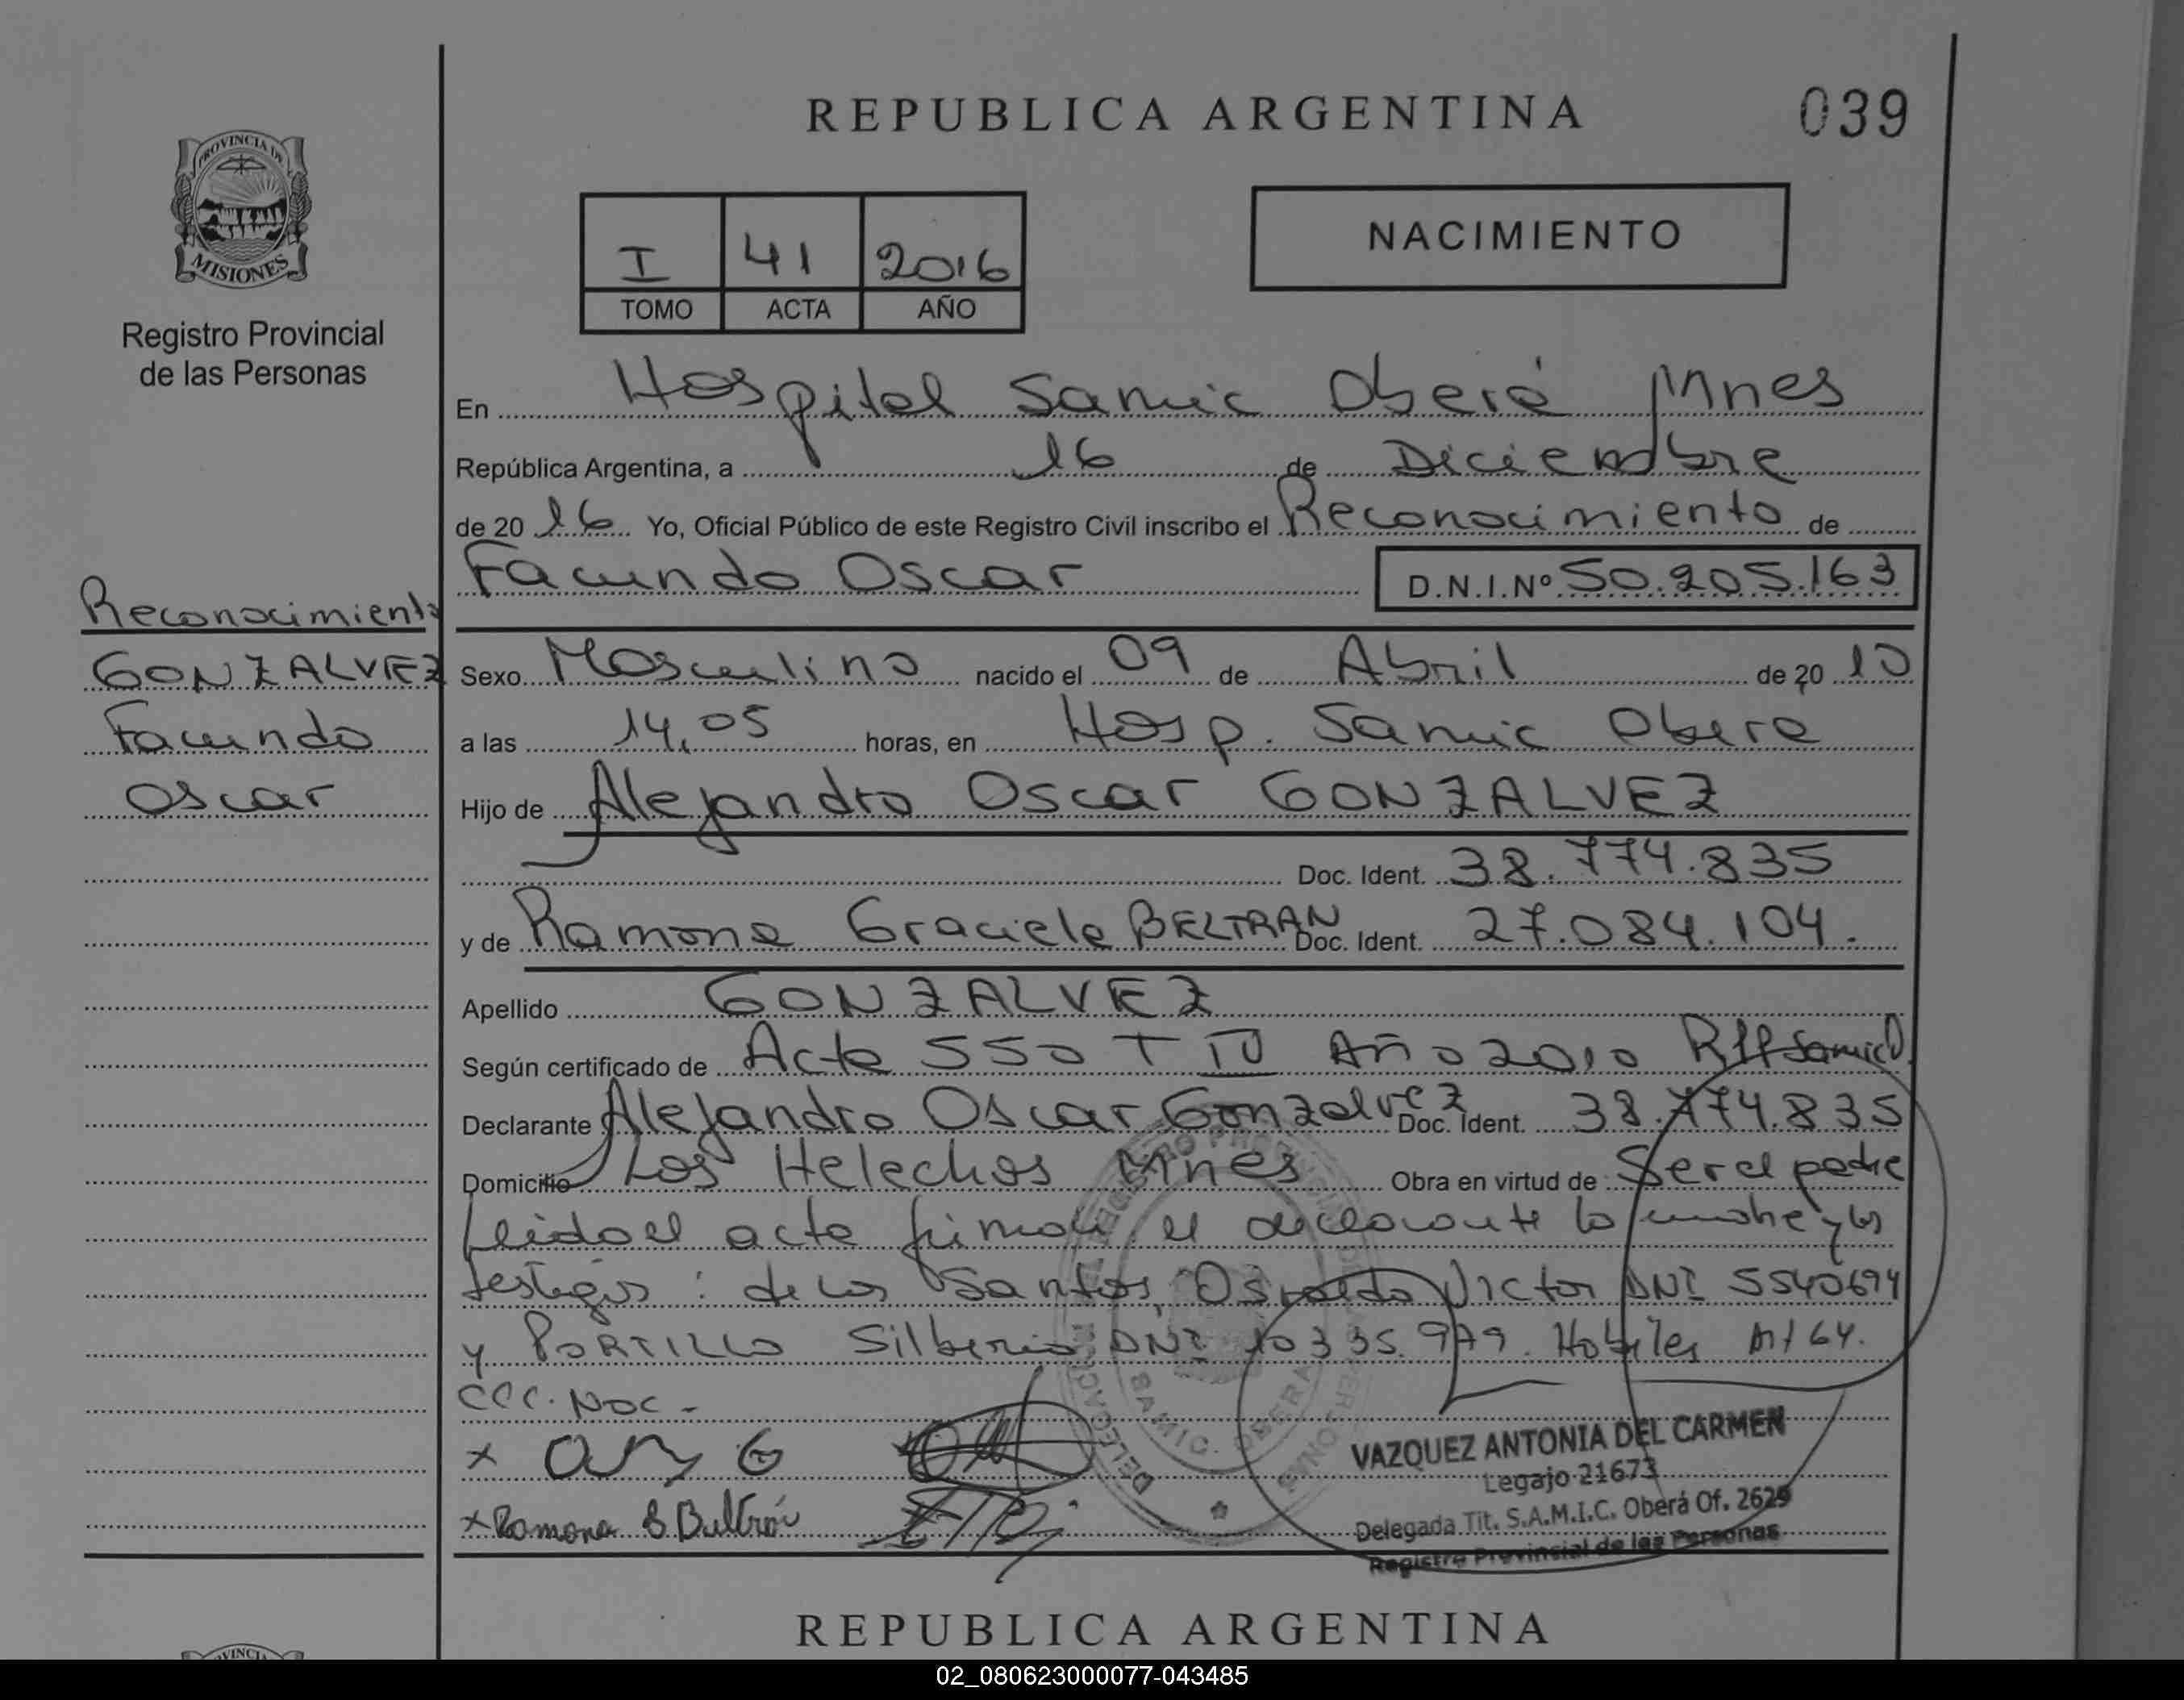 REPUBLICA ARGENTINA
039
PROVINCIA DE
MISIONES
Registro Provincial
de las Personas
I 41 2016
TOMO ACTA AÑO
NACIMIENTO
En Hospital Samic Oberá Mnes
República Argentina, a 16 de Diciembre
de 20 16 Yo, Oficial Público de este Registro Civil inscribo el Reconocimiento de
Facundo Oscar D.N.I.Nº 50.205.163
Reconocimiento
GONZALVEZ
Facundo
Oscar
Sexo Masculino nacido el 09 de Abril de 20 10
a las 14,05 horas, en Hosp. Samic Obera
Hijo de Alejandro Oscar GONZALVEZ
Doc. Ident. 38.774.835
y de Ramona Graciela BELTRAN Doc. Ident. 27.084.104.
Apellido GONZALVEZ
Según certificado de Acta 550 T IV Año 2010 RPP Samic O.
Declarante Alejandro Oscar Gonzalvez Doc. Ident. 38.774.835
Domicilio Los Helechos Mnes Obra en virtud de Ser el padre
Leido el acta firman el declarante la madre y los
testigos: de los Santos, Osvaldo Victor DNI 5540694
y PORTILLO Silberio DNI 10335.979. Hobiles M/64.
CCC. NOC -
x
x Ramona G Beltrán
SAMIC. OBERA
VAZQUEZ ANTONIA DEL CARMEN
Legajo 21673
Delegada Tit. S.A.M.I.C. Oberá Of. 2629
Registro Provincial de las Personas
REPUBLICA ARGENTINA
02_080623000077-043485